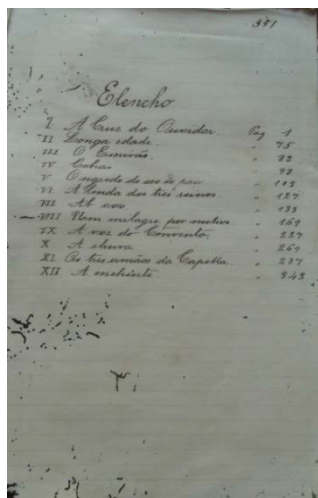 351
Elencho
I A Cruz do Ouvidor. Pag 1
II Longa edade. " 75
III O " 83
IV " 93
V O segredo do seo de pau " 113
VI A lenda dos tres reinos " 127
VII Ab ovo " 133
VIII Um milagre por metro. " 161
IX A voz do Convento. " 227
X A chuva " 261
XI Os tres irmãos da Capella " 287
XII A enchente " 343